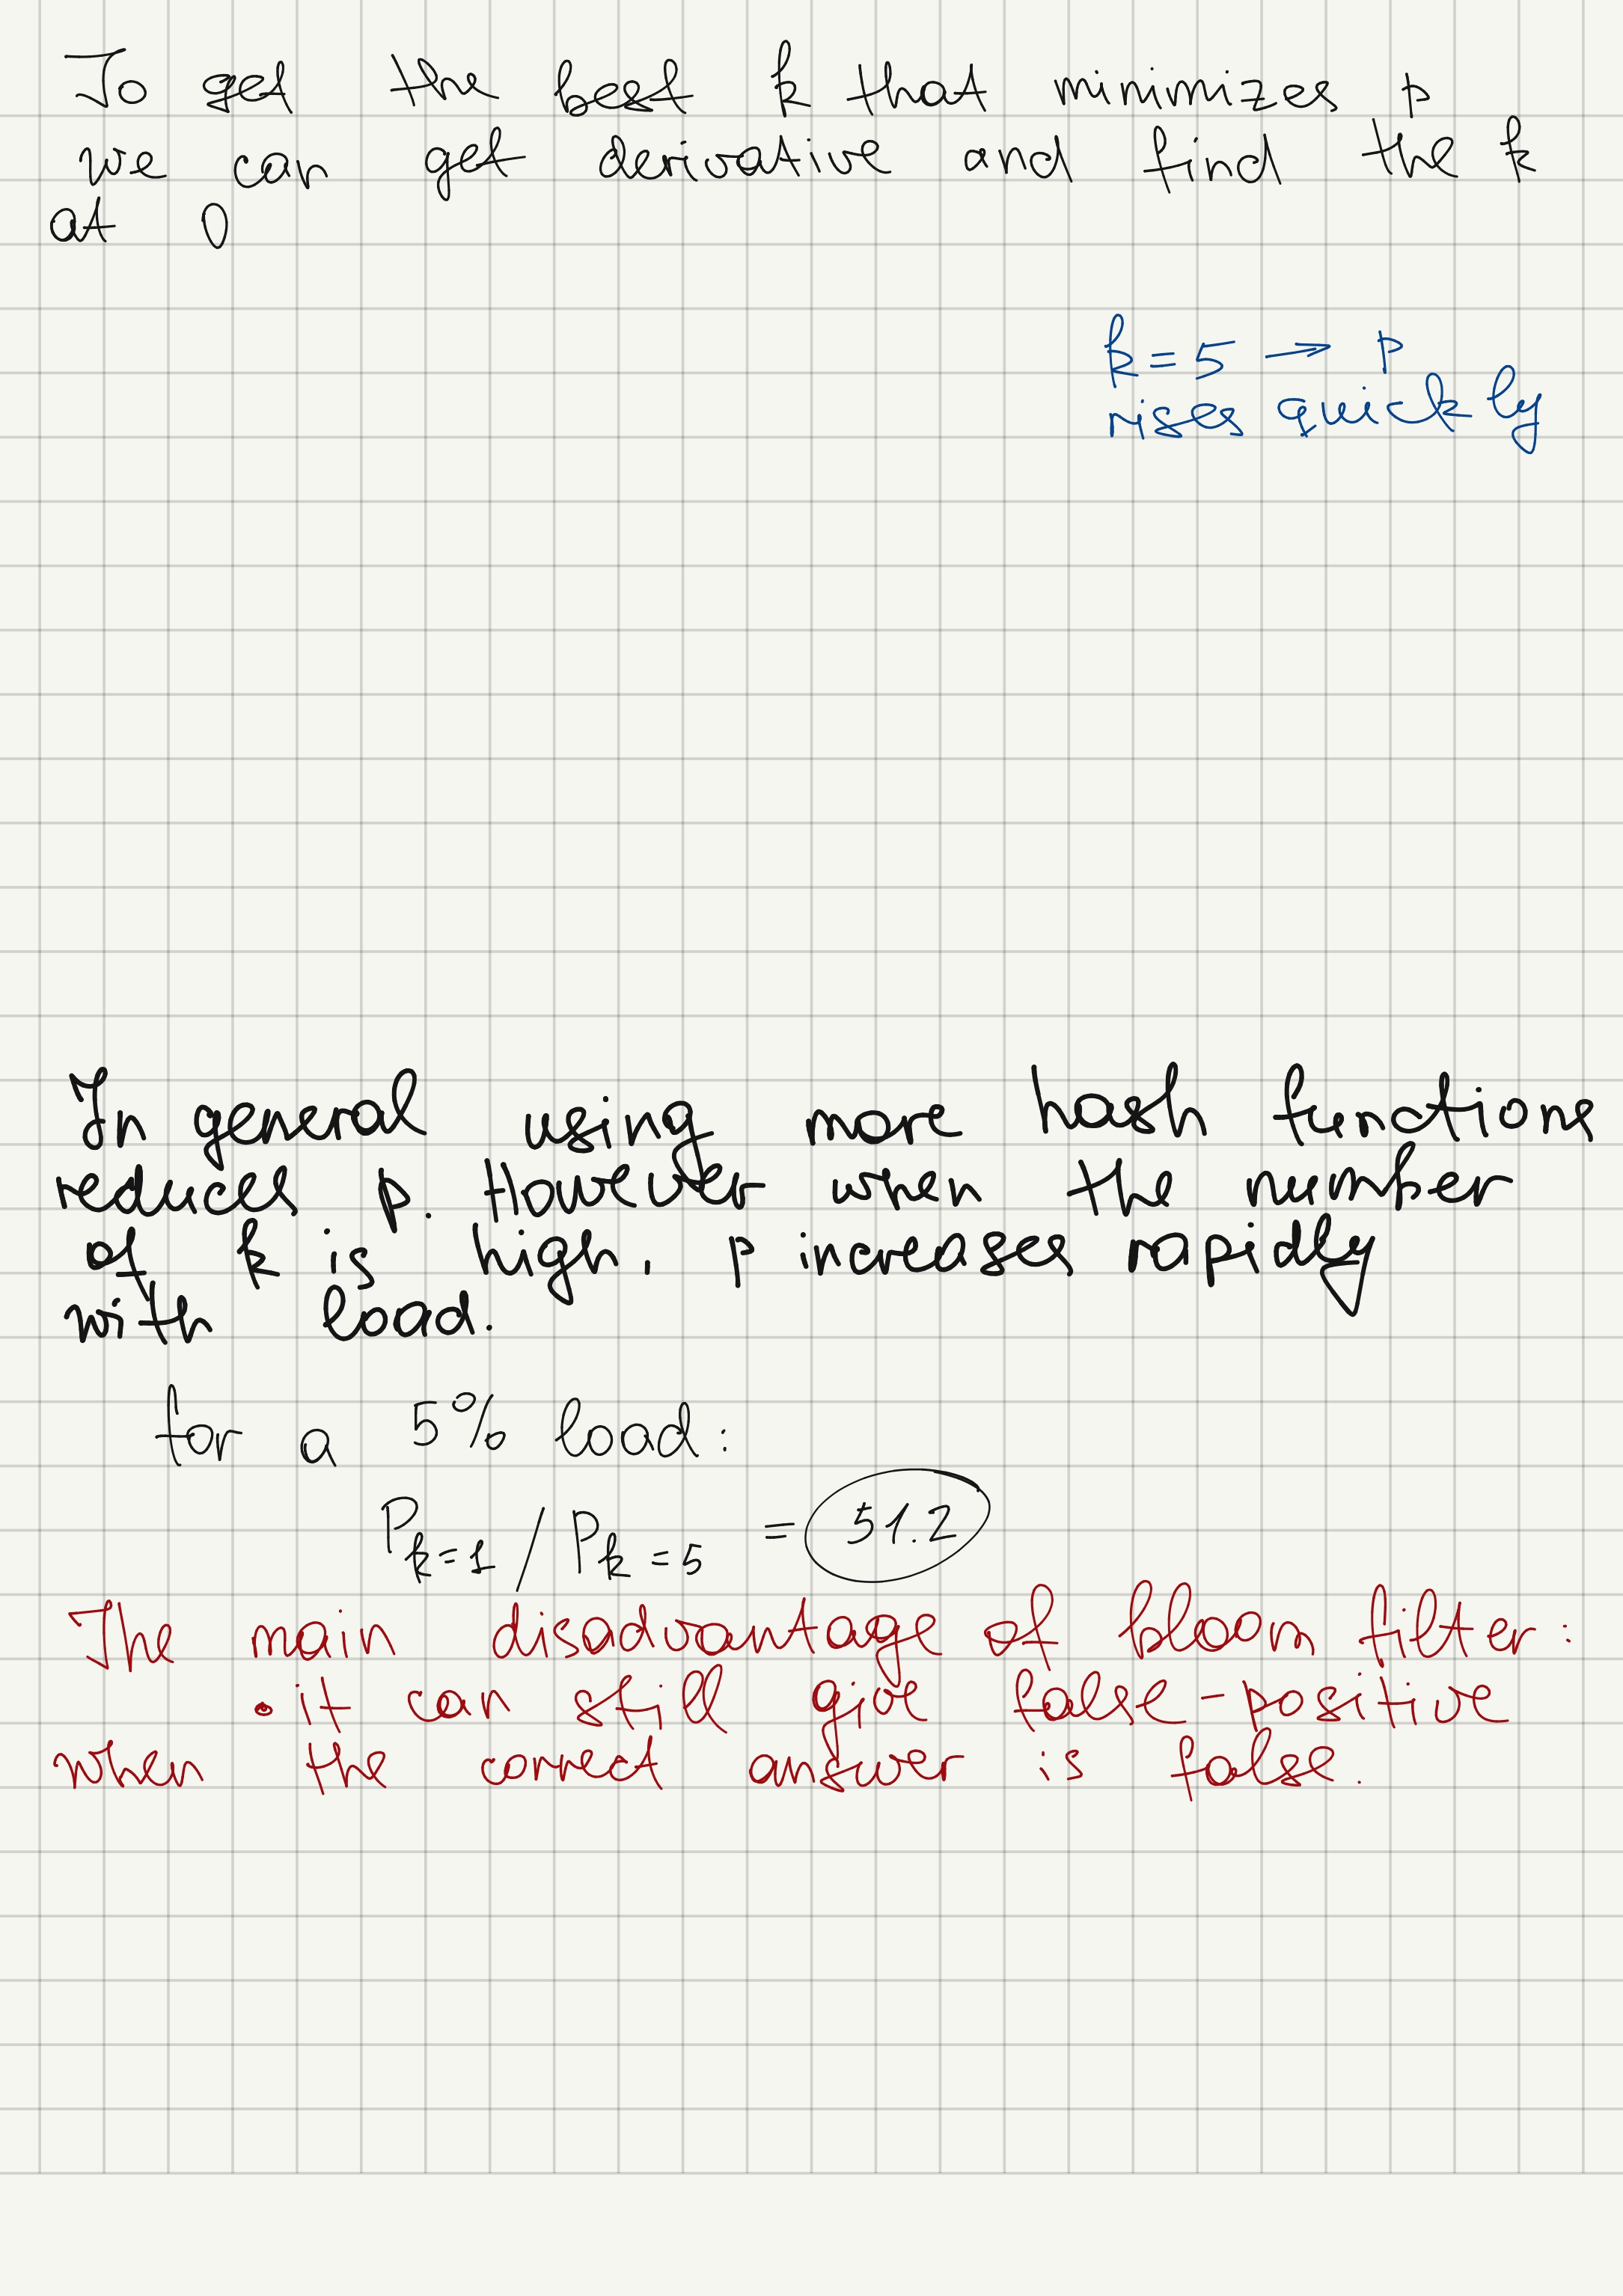 To get the best k that minimizes p
we can get derivative and find the k
at 0
k = 5 → p
rises quickly
In general using more hash functions
reduces p. However when the number
of k is high, p increases rapidly
with load.
for a 5% load:
P k=1 / P k=5 = 51.2
The main disadvantage of bloom filter:
• it can still give false-positive
when the correct answer is false.